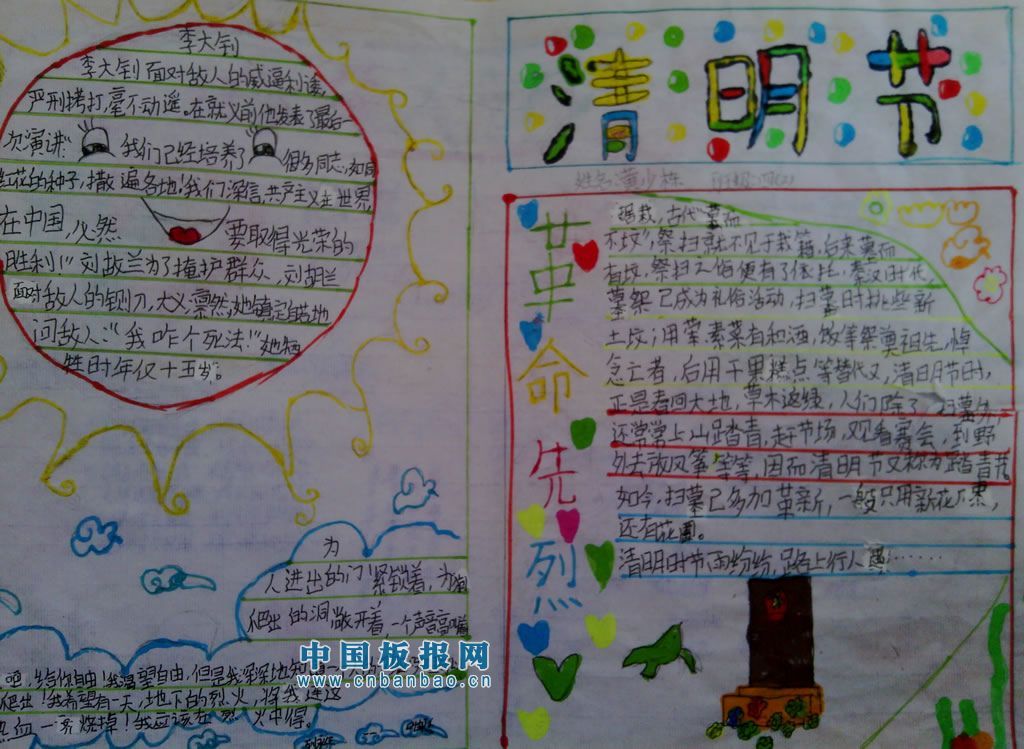 李大钊
李大钊面对敌人的威逼利诱,
严刑拷打,毫不动遥。在就义前他发表了最后一
次演讲:我们已经培养了很多同志,如同
红花的种子,撒遍各地!我们深信,共产主义在世界,
在中国,必然要取得光荣的
胜利!"刘故兰为了掩护群众,刘胡兰
面对敌人的铡刀,大义凛然,她镇定自若地
问敌人:"我咋个死法!"她牺
牲时年仅十五岁。
为
人进出的门紧锁着,为狗
爬出的洞敞开着,一个声音高叫着
吧,给你自由!我渴望自由,但是我深深地知
爬出!我希望有一天,地下的烈火,将我连
热血一齐烧掉!我应该在烈火中
清明节
姓名:黄少栋
革命先烈
据载,古代"墓而
不坟",祭扫就不见于载籍,后来墓而
有坟,祭扫之俗便有了依托,秦汉时代,
墓祭已成为礼俗活动,扫墓时挑些新
土坟;用荤素菜肴和酒,饭等祭奠祖先,悼
念亡者,后用干果糕点等替代又,清明节时,
正是春回大地,草木返绿,人们除了扫墓外,
还常常上山踏青,赶节场,观看赛会,到野
外去放风筝等等,因而清明节又称为踏青节
如今,扫墓已多加革新,一般只用新花水果,
还有花圈。
清明时节雨纷纷,路上行人……
中国板报网
www.cnbanbao.cn